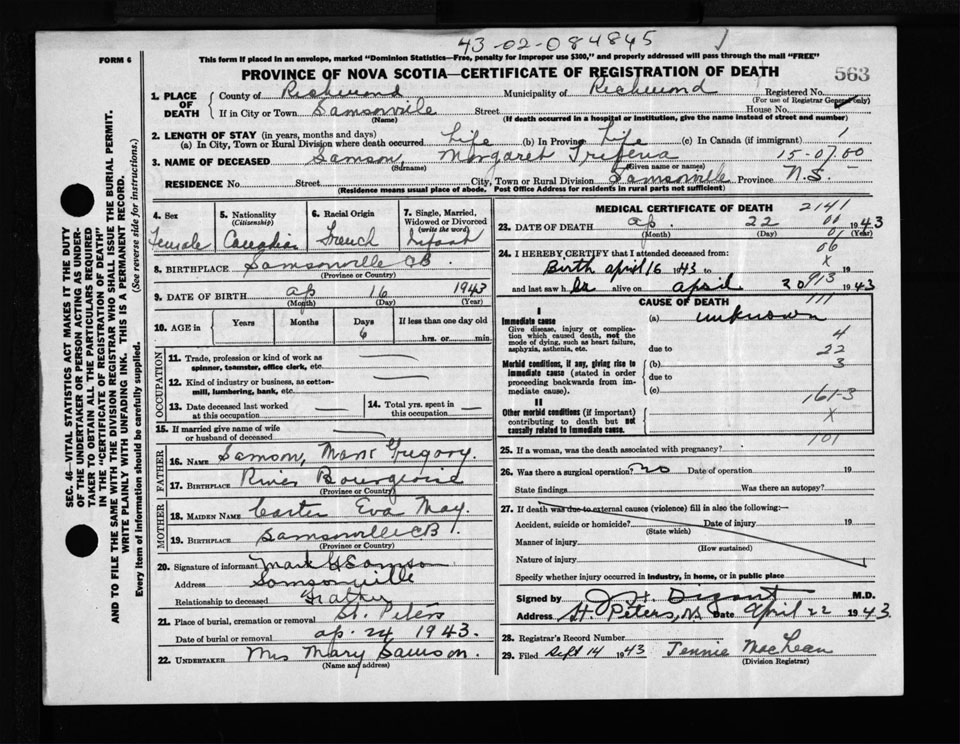 43-02-084845
FORM 6
This form if placed in an envelope, marked "Dominion Statistics—Free, penalty for improper use $300," and properly addressed will pass through the mail "FREE"
PROVINCE OF NOVA SCOTIA—CERTIFICATE OF REGISTRATION OF DEATH
563
SEC. 46—VITAL STATISTICS ACT MAKES IT THE DUTY
OF THE UNDERTAKER OR PERSON ACTING AS UNDER-
TAKER TO OBTAIN ALL THE PARTICULARS REQUIRED
IN THE "CERTIFICATE OF REGISTRATION OF DEATH"
AND TO FILE THE SAME WITH THE DIVISION REGISTRAR WHO SHALL ISSUE THE BURIAL PERMIT.
WRITE PLAINLY WITH UNFADING INK. THIS IS A PERMANENT RECORD.
Every item of information should be carefully supplied. (See reverse side for instructions.)
1. PLACE OF DEATH County of Richmond Municipality of Richmond Registered No.
(For use of Registrar General only)
If in City or Town Samsonville Street House No.
(Name) (If death occurred in a hospital or institution, give the name instead of street and number)
2. LENGTH OF STAY (in years, months and days)
(a) In City, Town or Rural Division where death occurred Life (b) In Province Life (c) In Canada (if immigrant)
3. NAME OF DECEASED Samson, Margaret Trifena
(Surname) (Given name or names) 15-07.00
RESIDENCE No. Street City, Town or Rural Division Samsonville Province N.S.
(Residence means usual place of abode. Post Office Address for residents in rural parts not sufficient)
4. Sex 5. Nationality (Citizenship) 6. Racial Origin 7. Single, Married, Widowed or Divorced (write the word)
Female Canadian French Infant
8. BIRTHPLACE Samsonville CB.
(Province or Country)
9. DATE OF BIRTH ap 16 1943
(Month) (Day) (Year)
10. AGE in Years Months Days If less than one day old
6 hrs. or min.
OCCUPATION
11. Trade, profession or kind of work as
spinner, teamster, office clerk, etc.
12. Kind of industry or business, as cotton-
mill, lumbering, bank, etc.
13. Date deceased last worked
at this occupation
14. Total yrs. spent in
this occupation
15. If married give name of wife
or husband of deceased
FATHER
16. NAME Samson, Mark Gregory.
17. BIRTHPLACE River Bourgeoise
(Province or Country)
MOTHER
18. MAIDEN NAME Carter Eva May.
19. BIRTHPLACE Samsonville CB
(Province or Country)
20. Signature of informant Mark G Samson
Address Samsonville
Relationship to deceased Father
21. Place of burial, cremation or removal St. Peters
Date of burial or removal ap. 24 1943.
22. UNDERTAKER Mrs Mary Samson.
(Name and address)
MEDICAL CERTIFICATE OF DEATH 2141
23. DATE OF DEATH ap. 22 1943
(Month) (Day) (Year)
01
01
24. I HEREBY CERTIFY that I attended deceased from:
06
Birth april 16 1943 to 19
X
and last saw h alive on april 20 1943
913
111
CAUSE OF DEATH
I
Immediate cause (a) unknown
Give disease, injury or complica-
tion which caused death, not the
mode of dying, such as heart failure,
asphyxia, asthenia, etc.
4
due to
22
Morbid conditions, if any, giving rise to
immediate cause (stated in order
proceeding backwards from im-
mediate cause).
(b)
3
due to
(c)
161-3
II
Other morbid conditions (if important)
contributing to death but not
causally related to immediate cause.
X
101
25. If a woman, was the death associated with pregnancy?
26. Was there a surgical operation? no Date of operation 19
State findings Was there an autopsy?
27. If death was due to external causes (violence) fill in also the following:—
Accident, suicide or homicide? Date of injury 19
(State which)
Manner of injury
(How sustained)
Nature of injury
Specify whether injury occurred in industry, in home, or in public place
Signed by J. H. Digout M.D.
Address St. Peters, NS Date April 22 1943
28. Registrar's Record Number
29. Filed Sept 14 1943 Tennie MacLean
(Division Registrar)